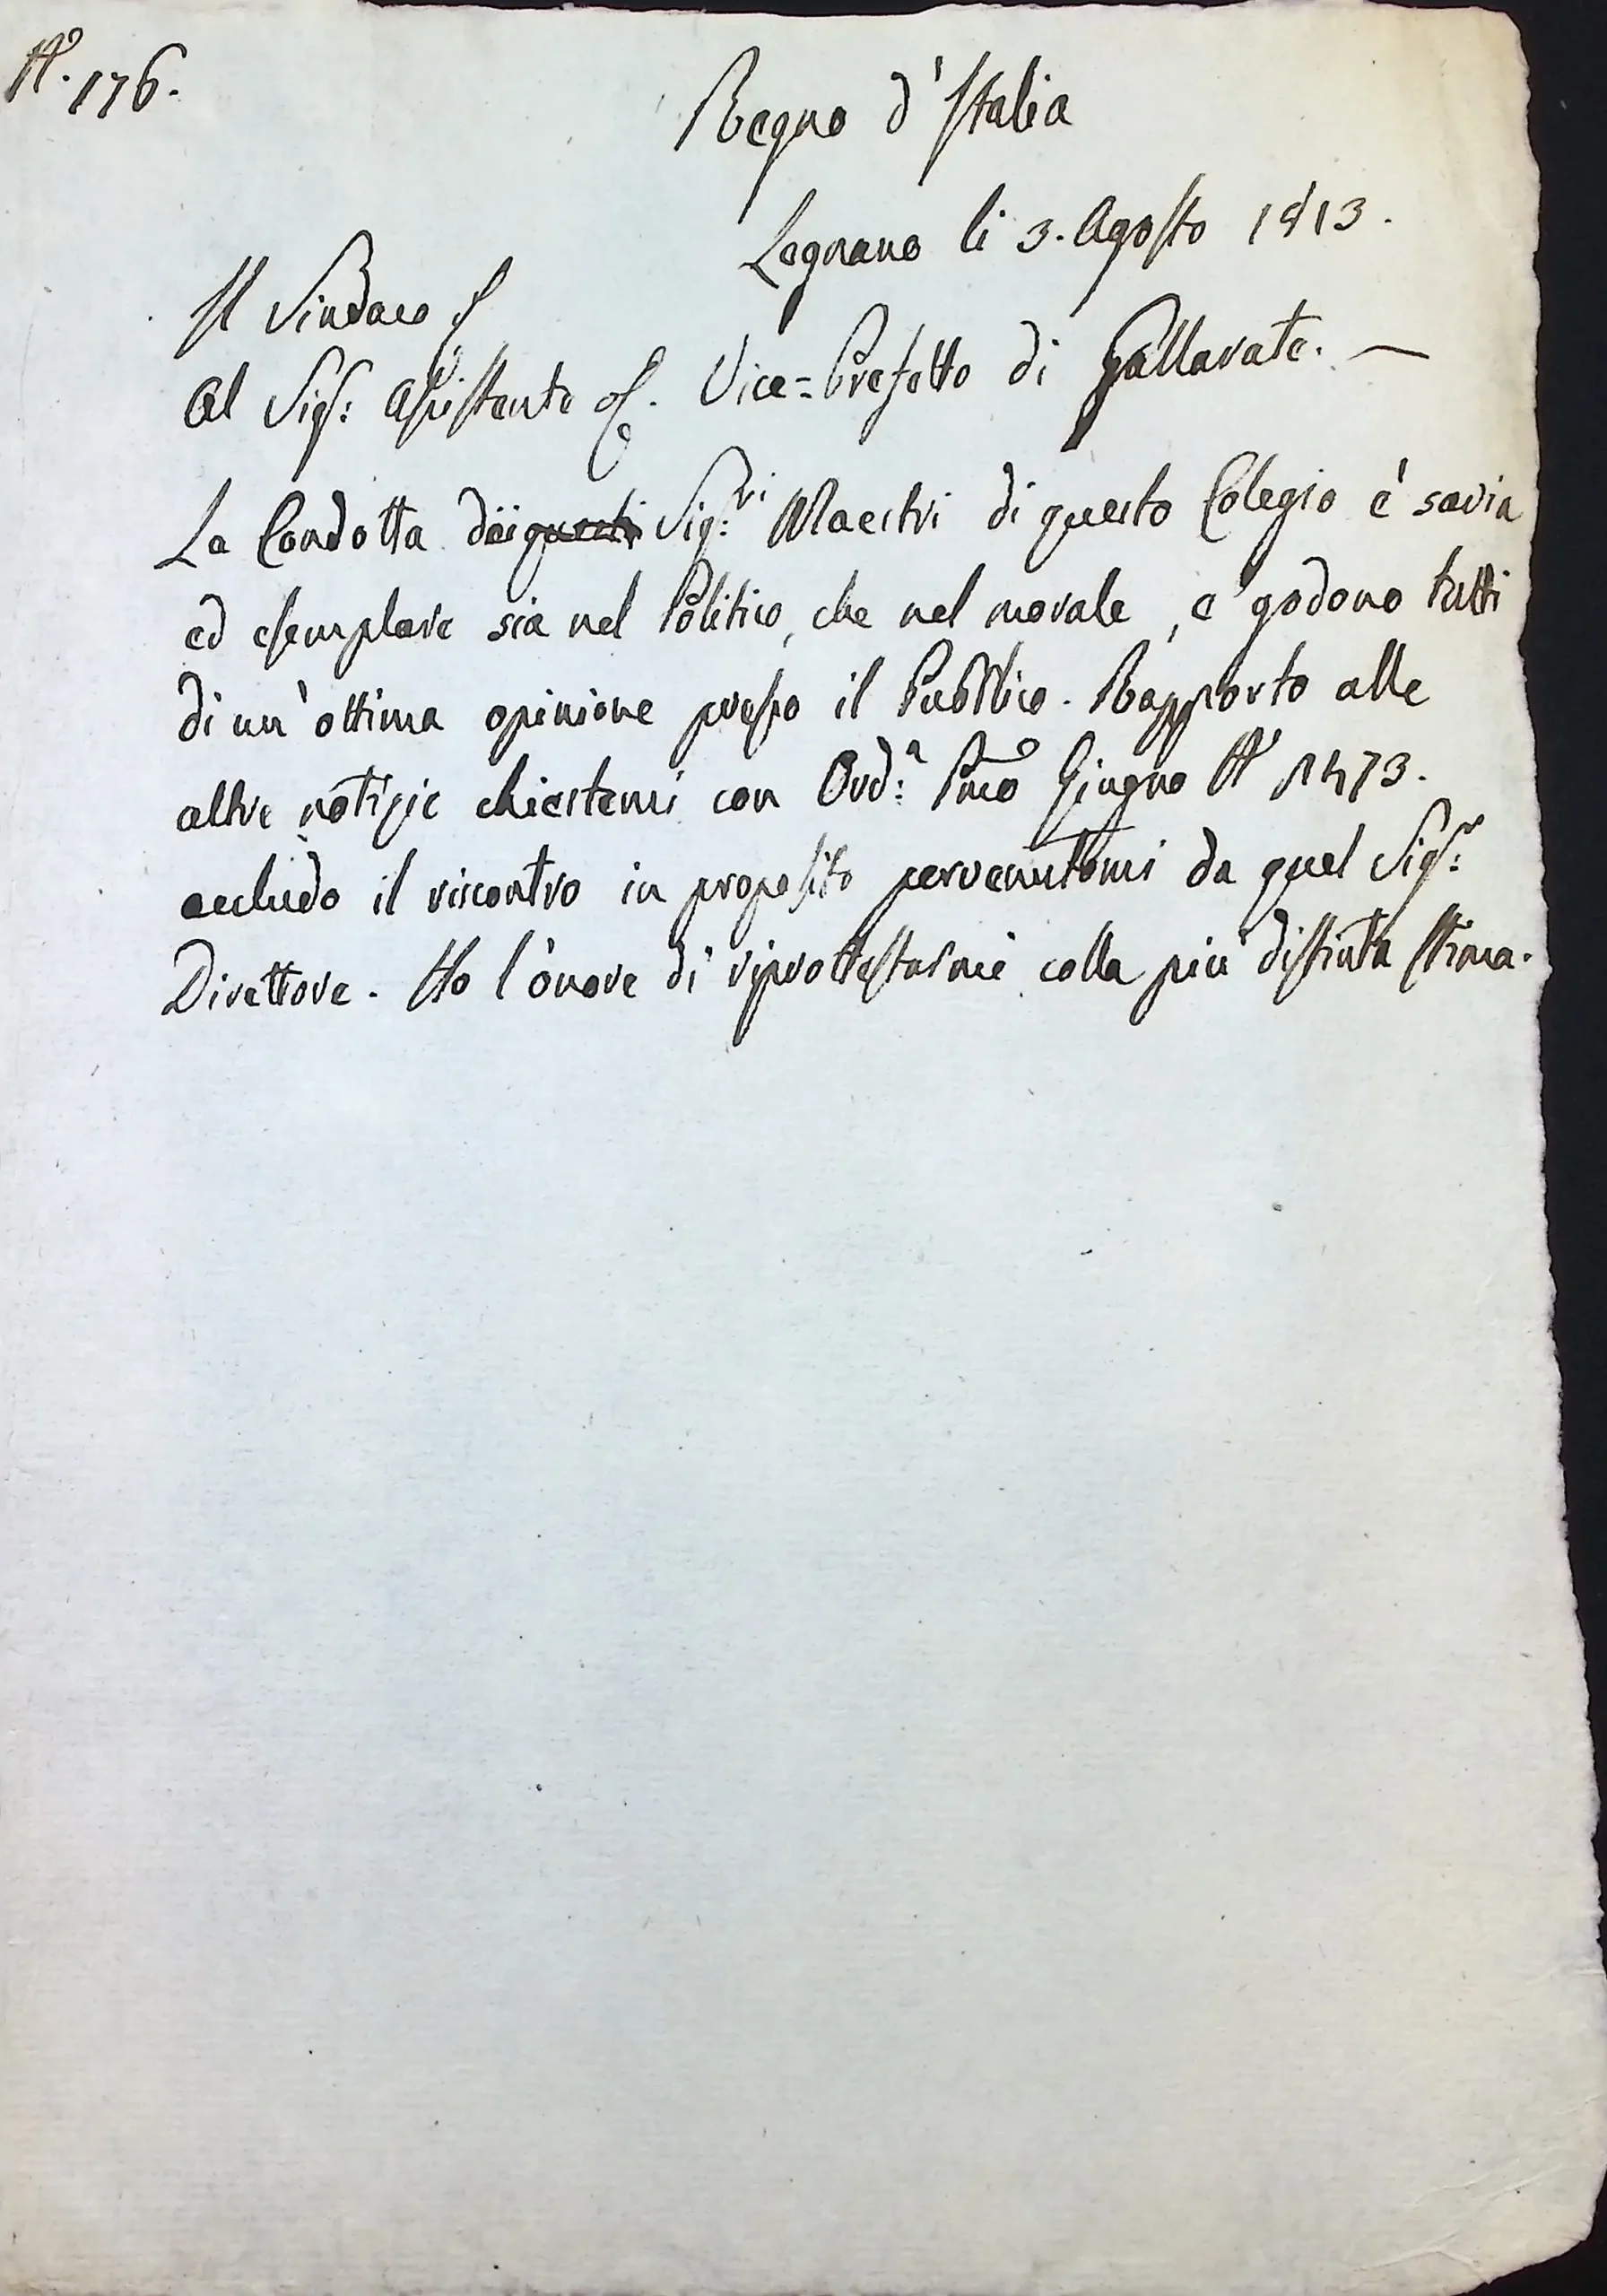 N.° 176.
Regno d'Italia
Legnano li 3. Agosto 1813.
Il Sindaco
Al Sig.r Assistente Vice=Prefetto di Gallarate. —
La Condotta dei questi Sig.ri Maestri di questo Colegio è savia
ed esemplare sia nel Politico, che nel morale, e godono tutti
di un'ottima opinione presso il Pubblico. Rapporto alle
altre notizie chiestemi con Ord.a Pmo Giugno N° 1473.
accludo il riscontro in proposito pervenutomi da quel Sig.r
Direttore. Ho l'onore di riprottestarmi colla più distinta stima.